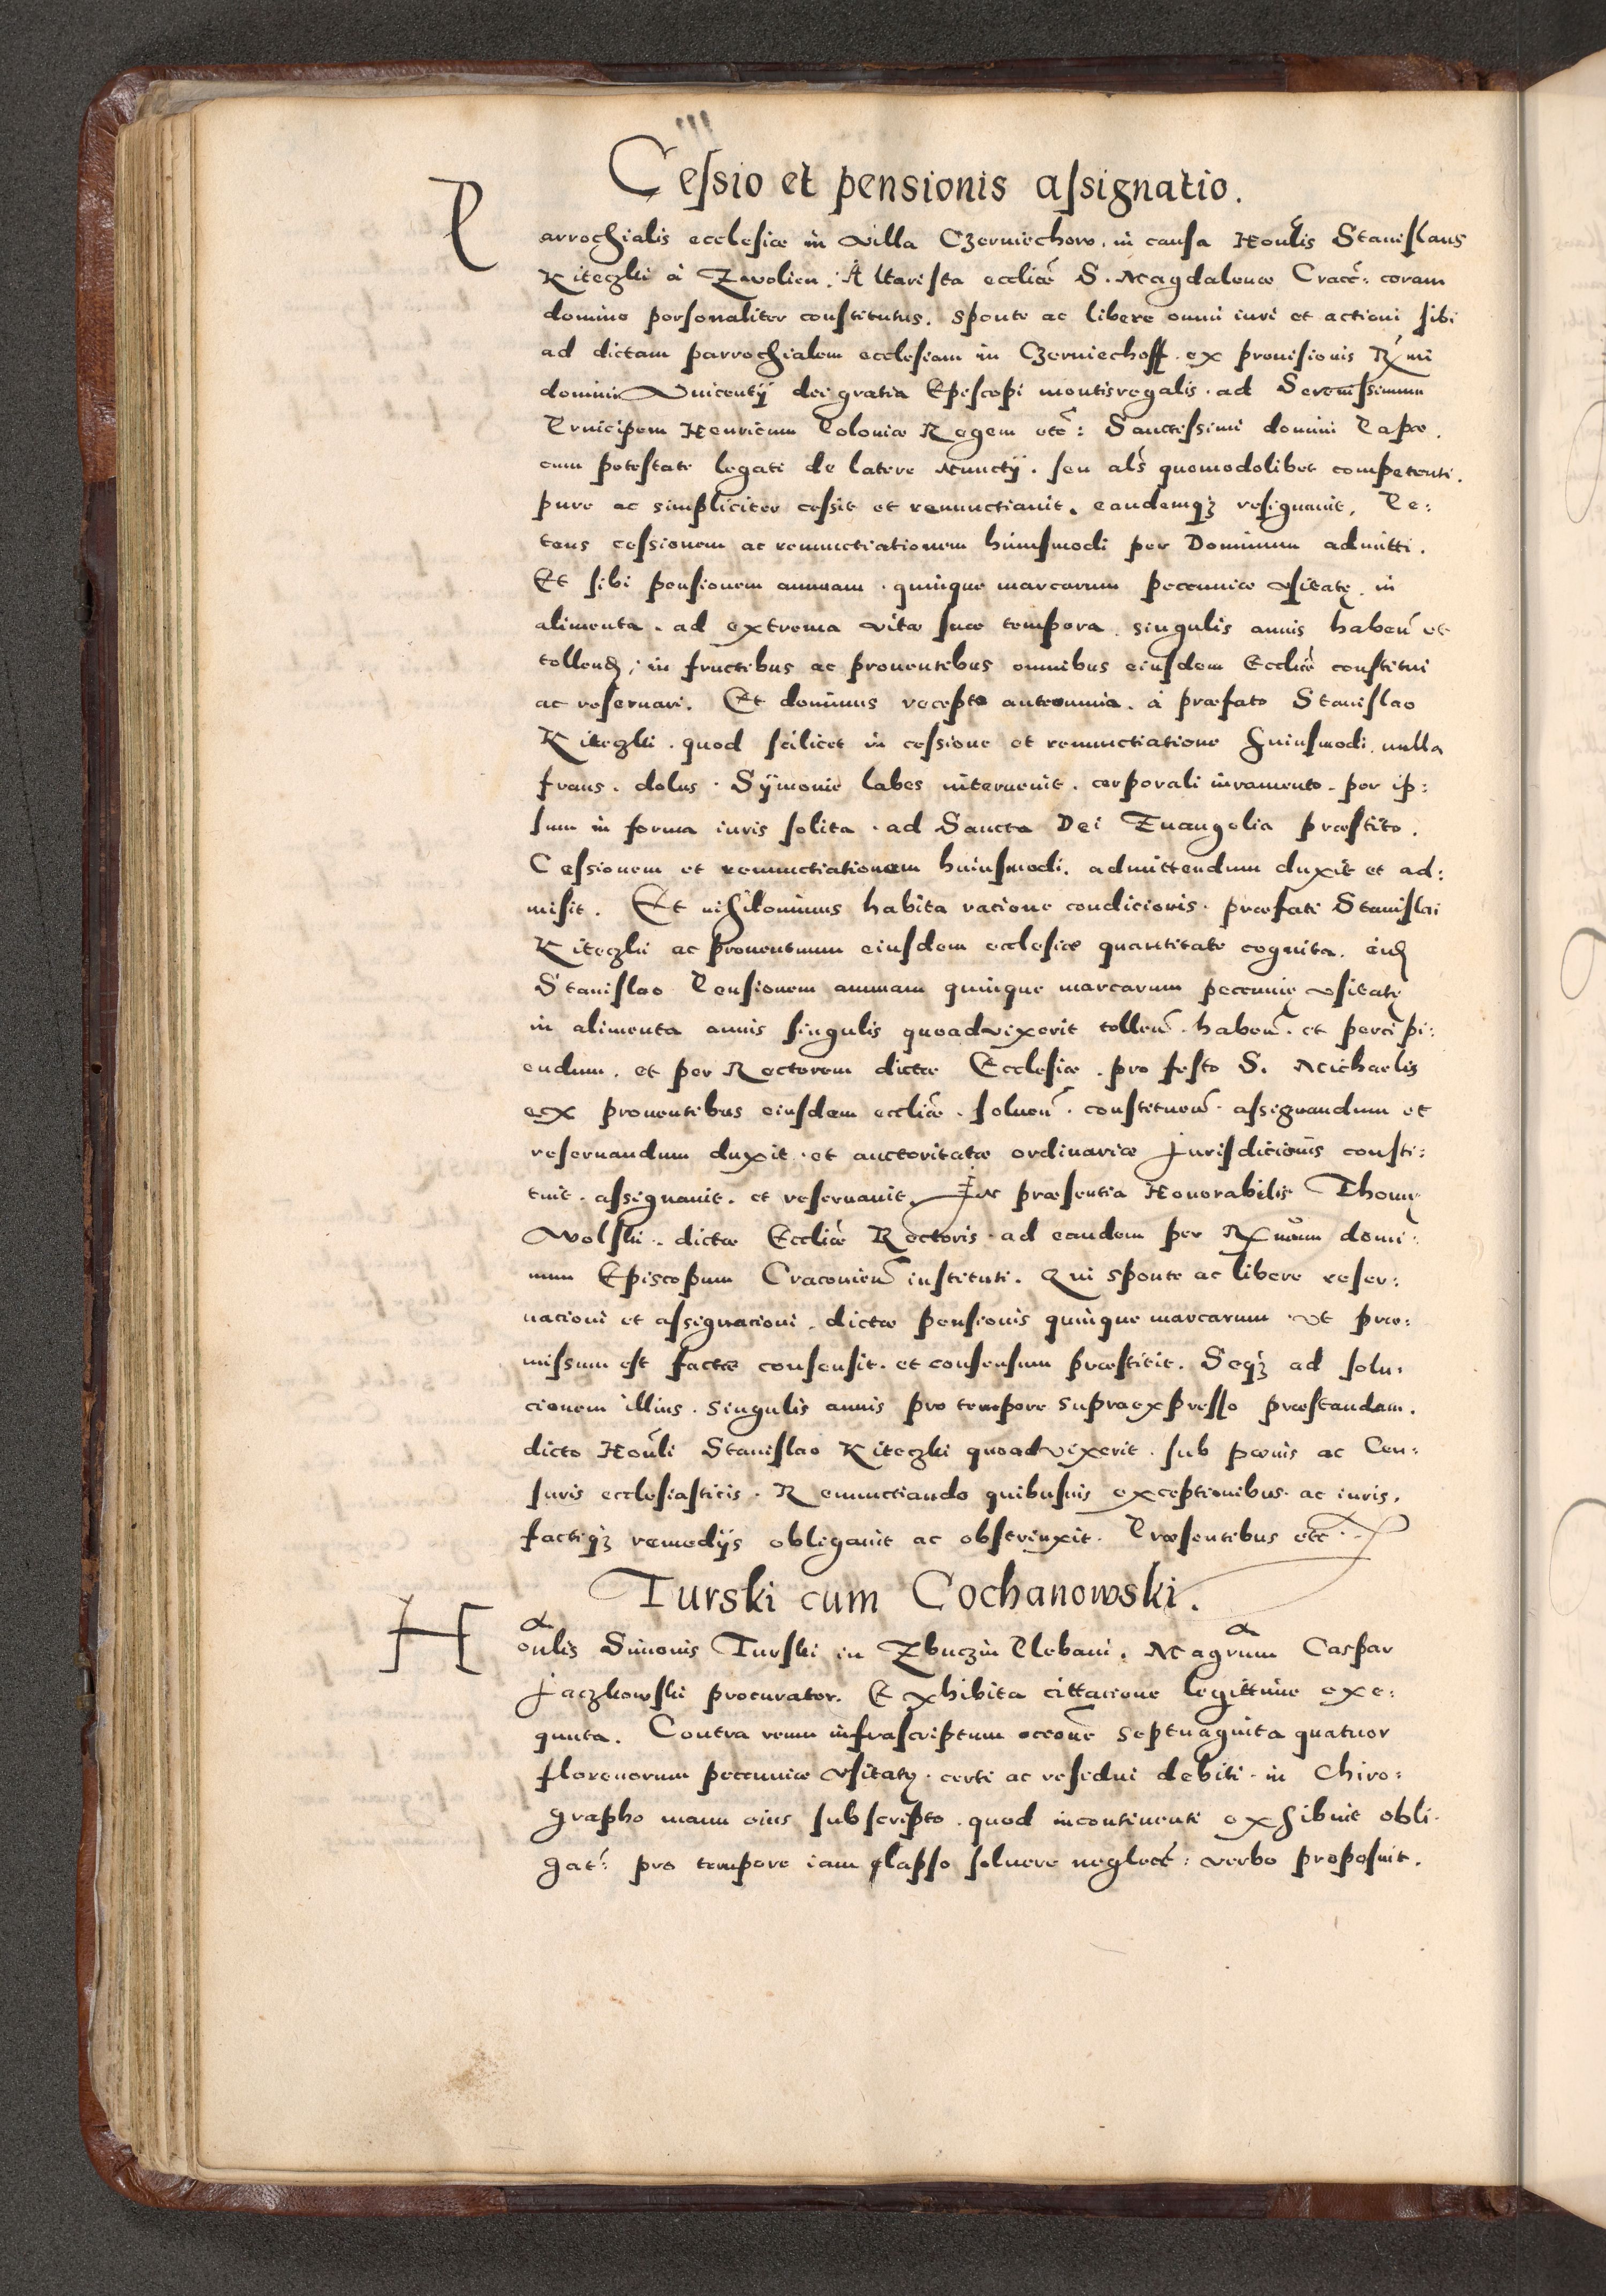 Cessio et pensionis assignatio.
Parrochialis ecclesiæ in villa Czerniechow. in causa Honlis Stanislaus
Kiteczki à Zwolien. Altarista eccliæ S. Magdalenæ Cracc: coram
domino personaliter constitutus. sponte ac libere omni iuri et actioni sibi
ad dictam parrochialem ecclesiam in Czerniechoff. ex prouisionis Rmi
domini Vnicentÿ dei gratia Episcopi montisregalis. ad Serenissimum
Principem Henricum Poloniæ Regem etc: Sanctissimi domini Papæ.
cum potestate legati de latere Nunctÿ. seu als quomodolibet competenti.
pure ac simpliciter cessit et renunctiauit. eandemqȝ resignauit. Pe:
tens cessionem ac renunctiationem huiusmodi per Dominum admitti.
Et sibi pensionem annuam. quinque marcarum peccuniæ vsitatę. in
alimenta. ad extrema vitæ suæ tempora. singulis annis haben et
tollend; in fructibus ac prouentibus omnibus eiusdem Eccliæ constitui
ac reseruari. Et dominus recepto anteomnia. à præfato Stanislao
Kiteczki. quod scilicet in cessione et renunctiatione huiusmodi. nulla
fraus. dolus. Sÿmonie labes interuenit. corporali iuramento. per ip:
sum in forma iuris solita. ad Sancta Dei Euangelia præstito.
Cessionem et renunctiationem huiusmodi. admittendum duxit et ad:
misit. Et nihilominus habita ratione condicionis. præfati Stanislai
Kiteczki ac prouentuum eiusdem ecclesiæ quantitate cognita. eid
Stanislao Pensionem annuam quinque marcarum peccunię vsitatę
in alimenta annis singulis quoadvixerit tollen. haben. et percipi:
endum. et per Rectorem dictæ Ecclesiæ. pro festo S. Michaelis
eex prouentibus eiusdem eccliæ. soluen. constituen. assignandum et
reseruandum duxit. et auctoritatæ ordinariæ Jurisdicionis consti:
tuit. assignauit. et reseruauit. In præsentia Honorabilis Thomę
Wolski. dictæ Eccliæ Rectoris. ad eandem per Rmum domi:
num Episcopum Cracouien instituti. Qui sponte ac libere reser:
uacioni et assignacioni. dictæ pensionis quinque marcarum vt præ:
missum est factæ consensit. et consensum præstitit. Seqȝ ad solu:
cionem illius. singulis annis pro tempore supraexpresso præstandam.
dicto Honli Stanislao Kiteczki quoadvixerit. sub pœnis ac Cen:
suris ecclesiasticis. Renunctiando quibusuis exceptionibus ac iuris.
factiqȝ remedÿs obligauit ac obstrinxit. Præsentibus etc.
Turski cum Cochanowski.
Honlis Simonis Turski in Zbuczin Plebani. Magrum Caspar
Jaczkowski procurator. Exhibita cittacione legittime exe:
quuta. Contra reum infrascriptum occone septuaginta quatuor
florenorum peccuniæ vsitatę. certi ac residui debiti. in Chiro:
grapho manu eius subscripto. quod incontinenti exhibuit obli:
gat: pro tempore iam elapso soluere neglect: verbo proposuit.